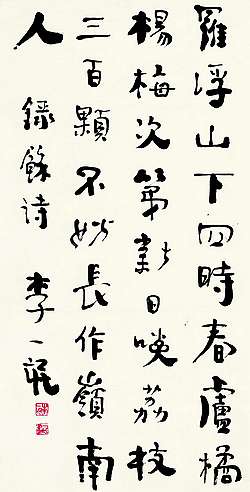 羅浮山下四時春盧橘
楊梅次第新日啖荔枝
三百顆不妨長作嶺南
人 錄蘇詩 李一氓